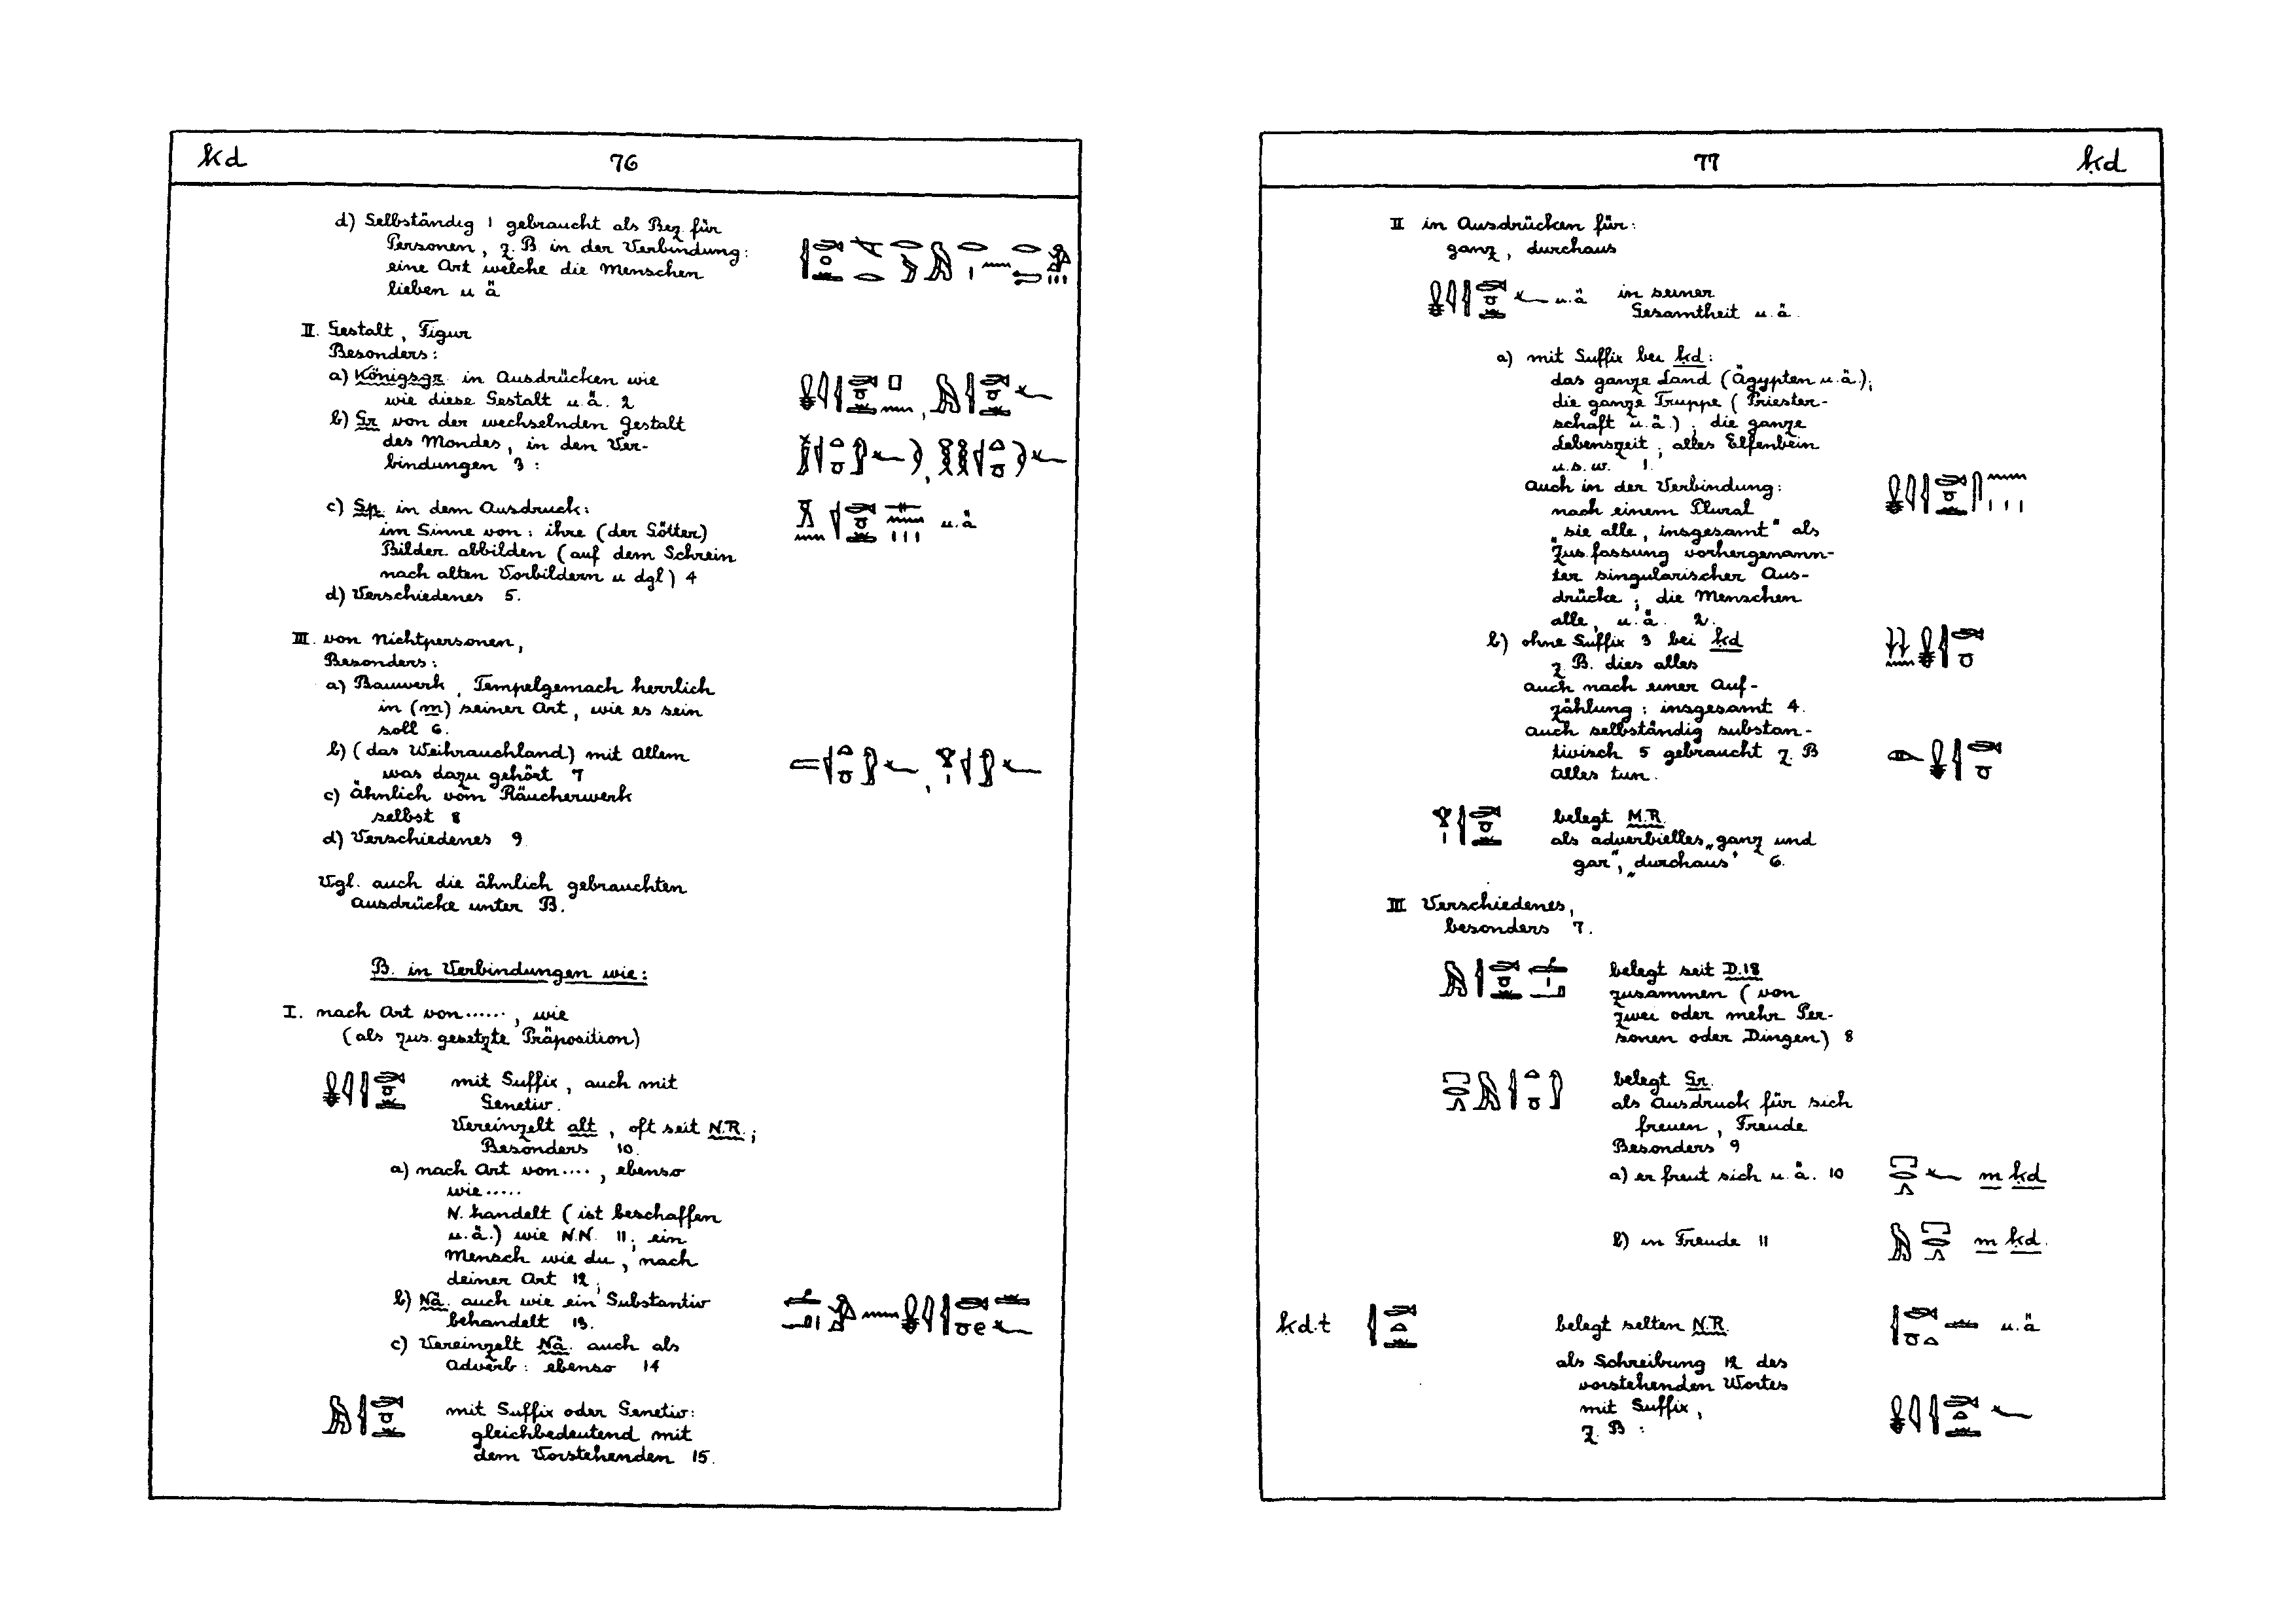 ḳd 76
d) Selbständig 1 gebraucht als Bez für
Personen, z.B in der Verbindung:
eine Art welche die Menschen
lieben u ä
II. Gestalt, Figur
Besonders:
a) Königsgr. in Ausdrücken wie
wie diese Gestalt u.ä. 2
b) Gr von der wechselnden Gestalt
des Mondes, in den Ver-
bindungen 3:
c) Sp. in dem Ausdruck: u.ä
im Sinne von: ihre (der Götter)
Bilder abbilden (auf dem Schrein
nach alten Vorbildern u dgl) 4
d) Verschiedenes 5.
III. von Nichtpersonen,
Besonders:
a) Bauwerk, Tempelgemach herrlich
in (m) seiner Art, wie es sein
soll 6.
b) (das Weihrauchland) mit Allem
was dazu gehört 7
c) Ähnlich vom Räucherwerk
selbst 8
d) Verschiedenes 9
Vgl. auch die ähnlich gebrauchten
Ausdrücke unter B.
B. in Verbindungen wie:
I. nach Art von......, wie
(als zus. gesetzte Präposition)
mit Suffix, auch mit
Genetiv.
Vereinzelt alt, oft seit N.R.;
Besonders 10.
a) nach Art von...., ebenso
wie.....
N. handelt (ist beschaffen
u.ä.) wie N.N. 11; ein
Mensch wie du, nach
deiner Art 12;
b) Nä. auch wie ein Substantiv
behandelt 13.
c) Vereinzelt Nä. auch als
Adverb: ebenso 14
mit Suffix oder Genetiv:
gleichbedeutend mit
dem Vorstehenden 15.
77 ḳd
II in Ausdrücken für:
ganz, durchaus
u.ä in seiner
Gesamtheit u.ä.
a) mit Suffix bei ḳd:
das ganze Land (Ägypten u.ä.);
die ganze Truppe (Priester-
schaft u.ä.); die ganze
Lebenszeit; alles Elfenbein
u.s.w. 1.
Auch in der Verbindung:
nach einem Plural
„sie alle, insgesamt" als
Zus.fassung vorhergenann-
ter singularischer Aus-
drücke; die Menschen
alle, u.ä. 2.
b) ohne Suffix 3 bei ḳd
z.B. dies alles
auch nach einer Auf-
zählung: insgesamt 4.
auch selbständig substan-
tivisch 5 gebraucht z.B
alles tun.
belegt M.R.
als adverbielles „ganz und
gar", „durchaus" 6.
III Verschiedenes,
besonders 7.
belegt seit D.18
zusammen (von
zwei oder mehr Per-
sonen oder Dingen) 8
belegt Gr.
als Ausdruck für sich
freuen, Freude
Besonders 9
a) er freut sich u.ä. 10 m ḳd
b) in Freude 11 m ḳd.
ḳd.t belegt selten N.R. u.ä
als Schreibung 12 des
vorstehenden Wortes
mit Suffix,
z.B: